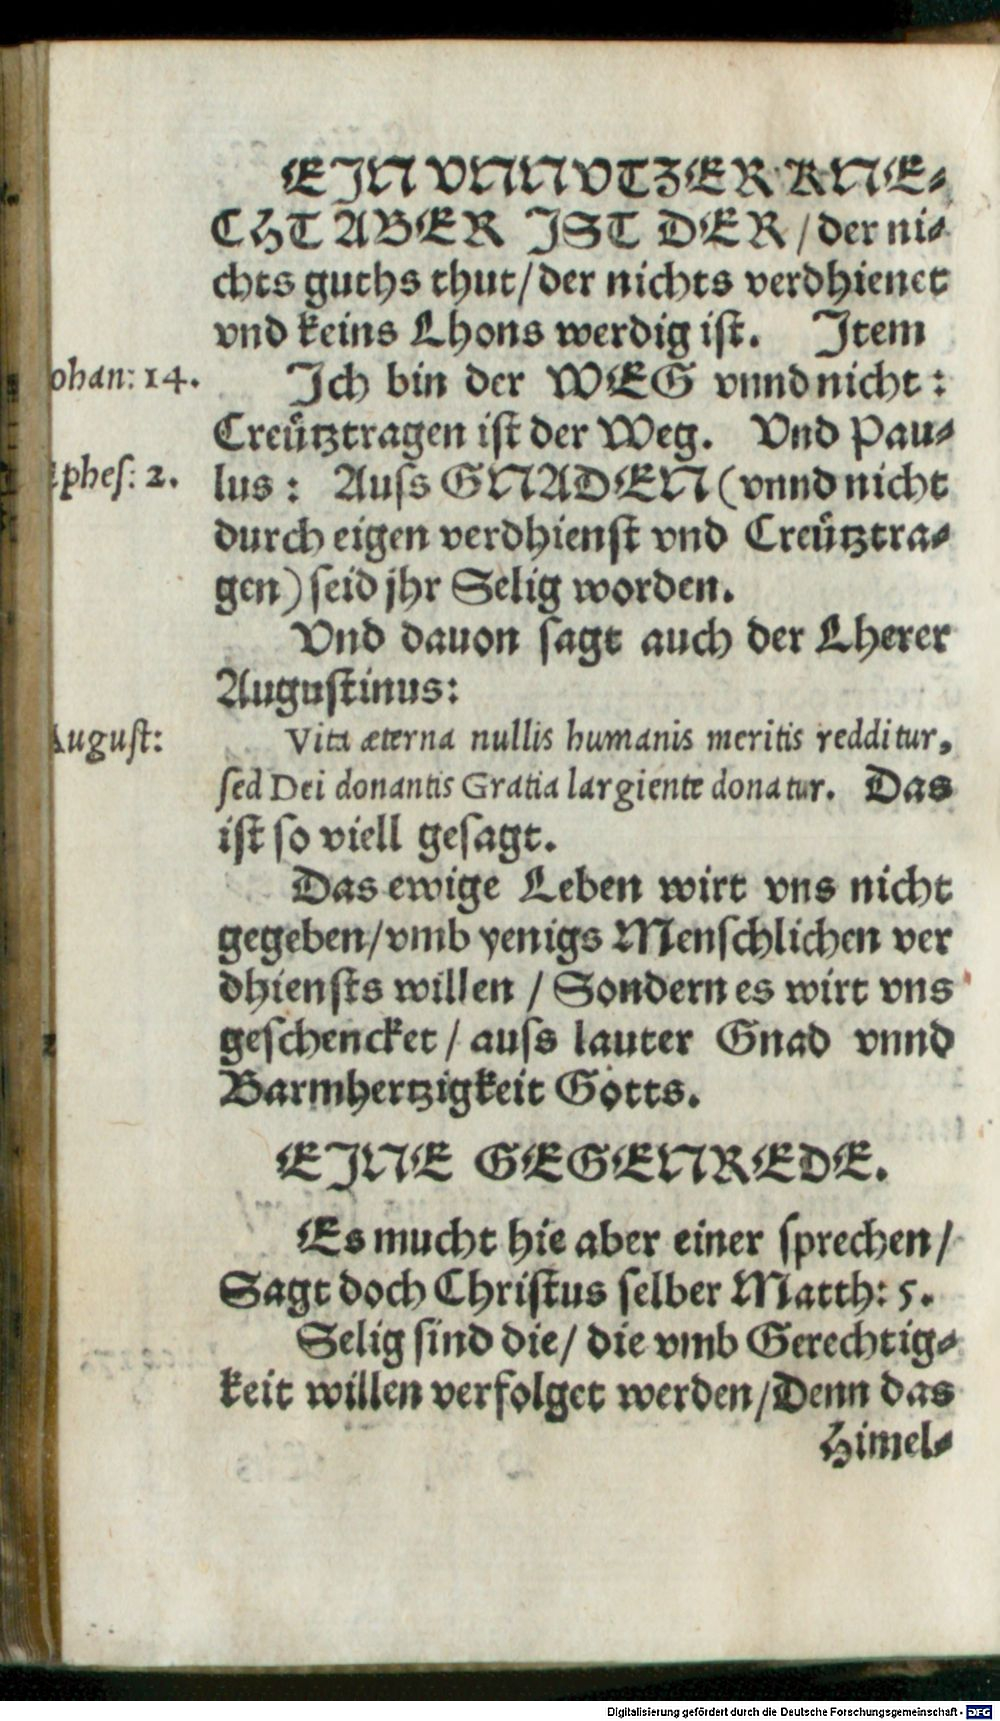 EJN VNNVTZER KNE⸗
CHT ABER JST DER / der ni⸗
chts guths thut / der nichts verdhienet
vnd keins Lhons werdig ist. Jtem
ohan: 14.
Jch bin der WEG vnnd nicht :
Creütztragen ist der Weg. Vnd Pau⸗
phes: 2.
lus : Auſs GNADEN (vnnd nicht
durch eigen verdhienst vnd Creütztra⸗
gen) ſeid jhr Selig worden.
Vnd dauon ſagt auch der Lherer
Auguſtinus:
August:
Vita æterna nullis humanis meritis redditur,
ſed Dei donantis Gratia largiente donatur. Das
iſt ſo viell geſagt.
Das ewige Leben wirt vns nicht
gegeben / vmb yenigs Menſchlichen ver
dhienſts willen / Sondern es wirt vns
geſchencket / auſs lauter Gnad vnnd
Barmhertzigkeit Gotts.
EJNE GEGENREDE.
Es mucht hie aber einer ſprechen /
Sagt doch Chriſtus ſelber Matth: 5.
Selig ſind die / die vmb Gerechtig⸗
keit willen verfolget werden / Denn das
Himel⸗
Digitalisierung gefördert durch die Deutsche Forschungsgemeinschaft - DFG